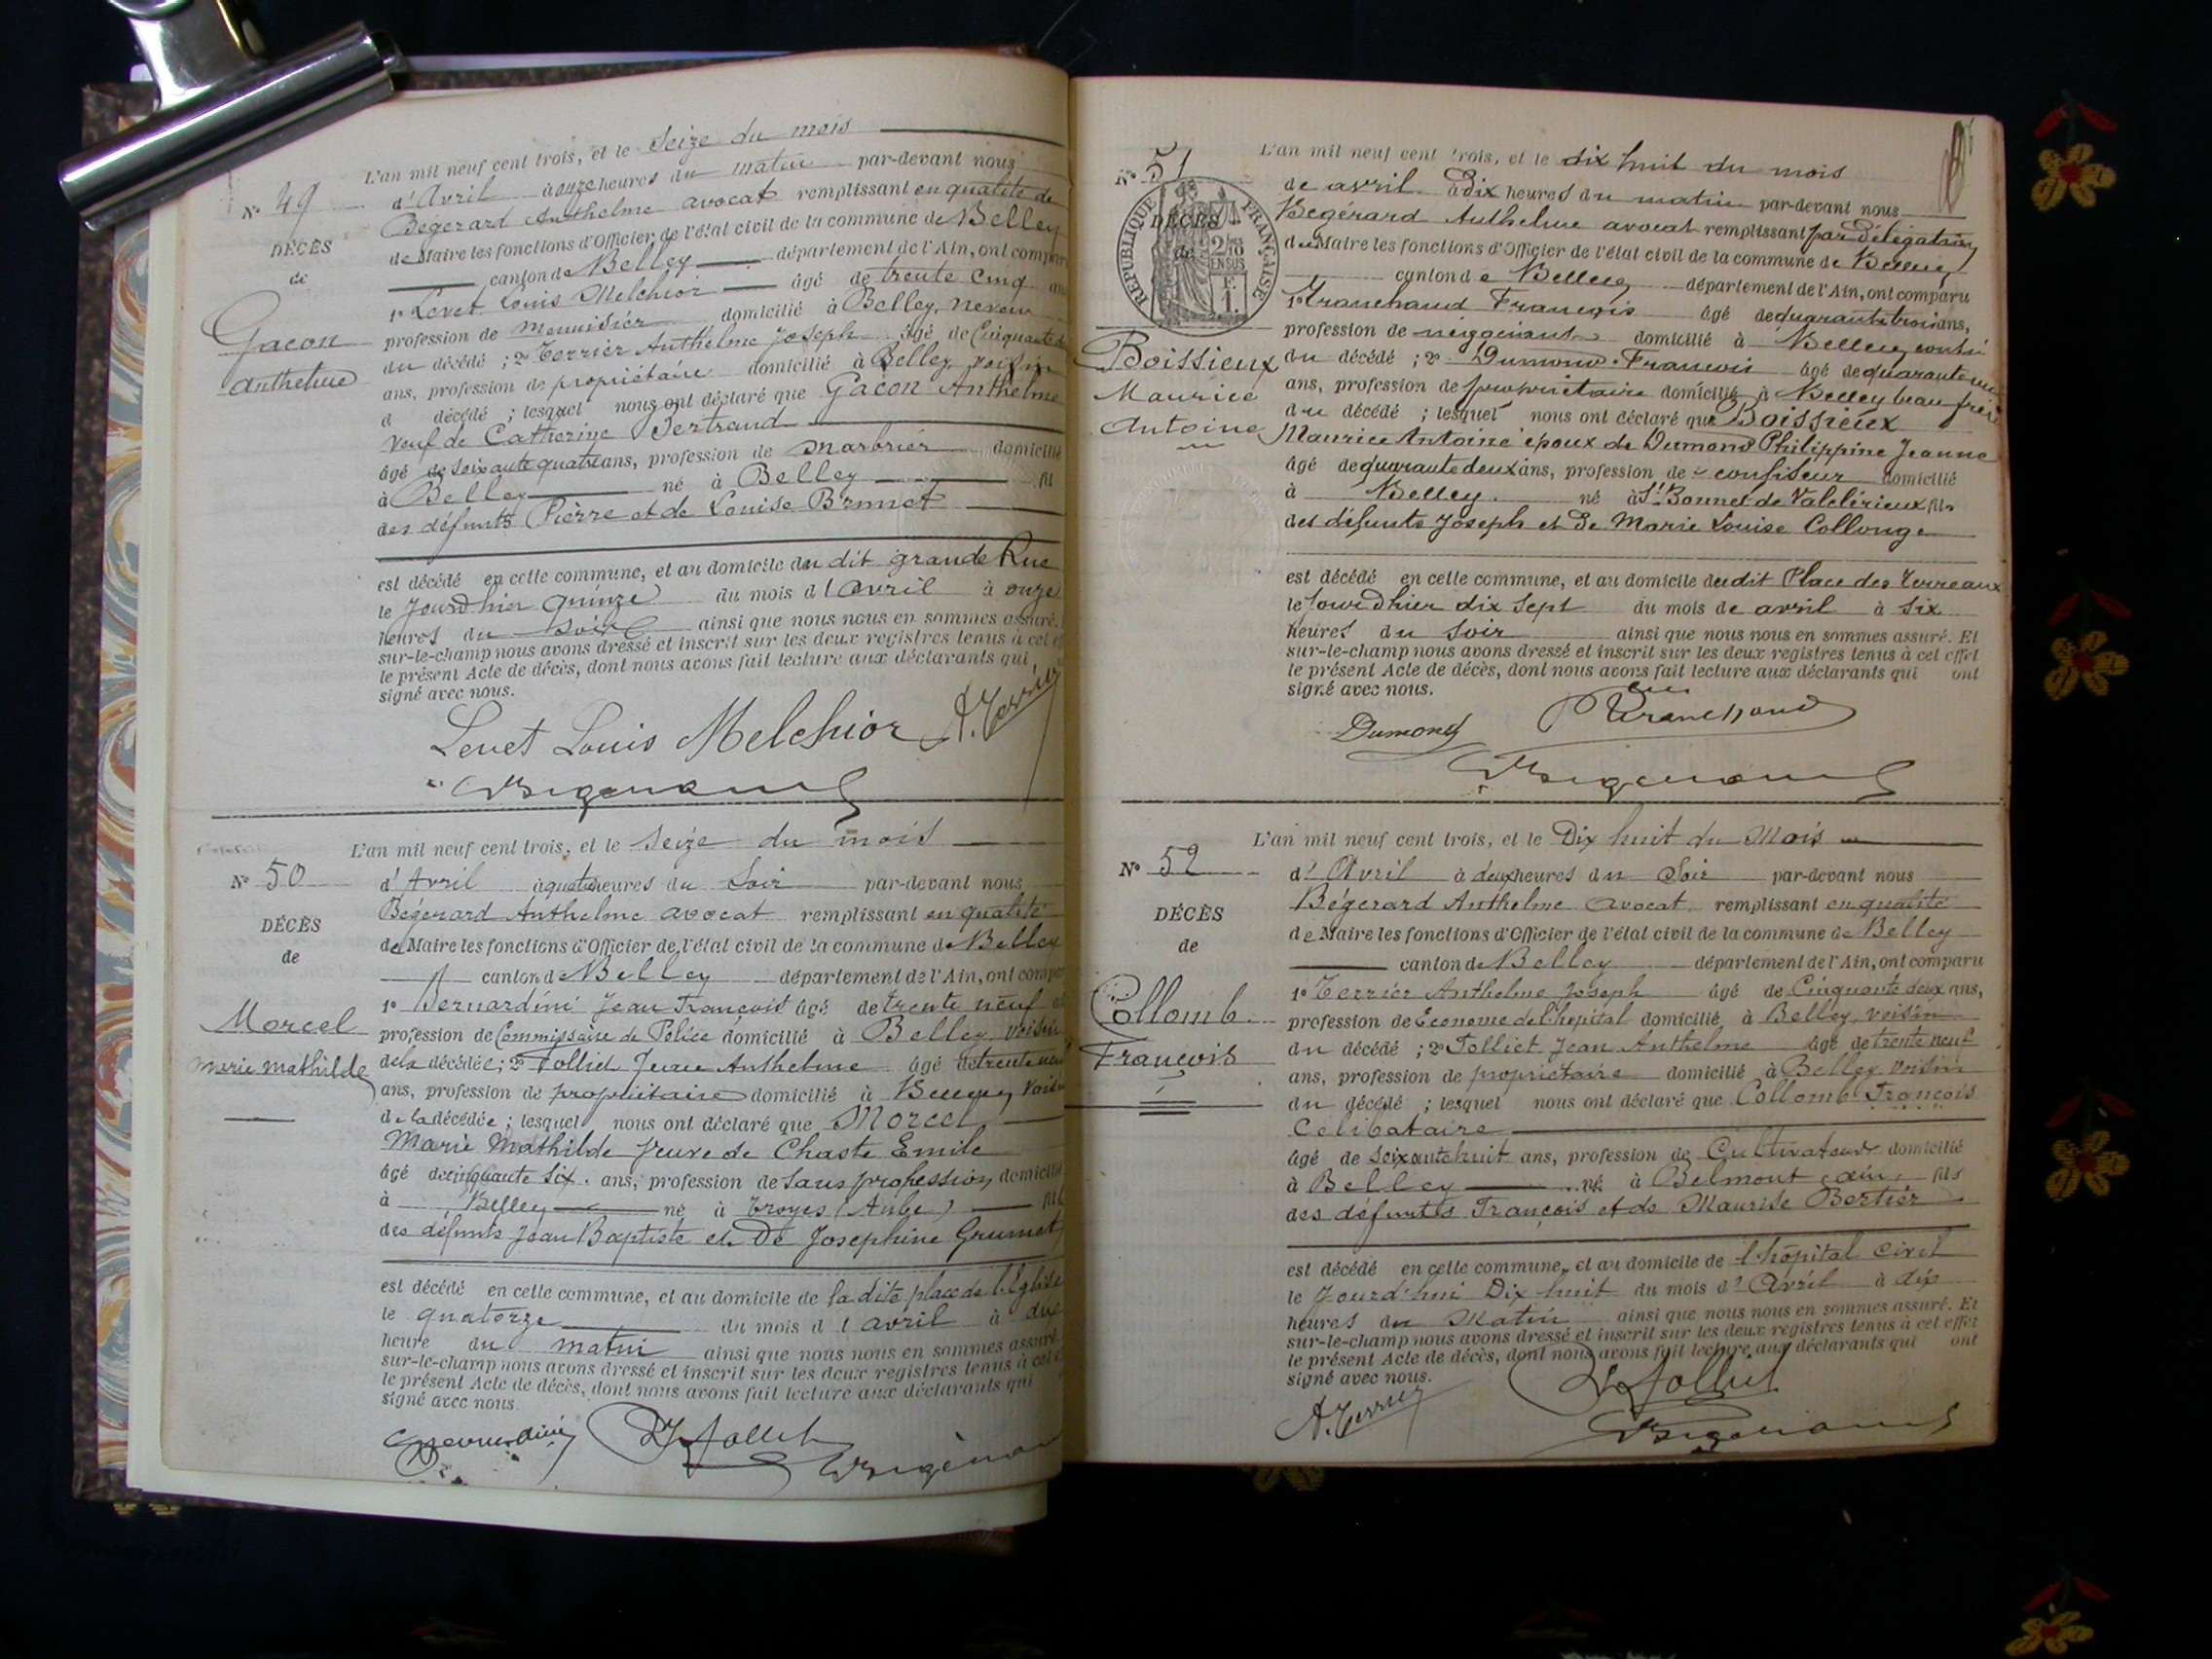 L'an mil neuf cent trois, et le Seize du mois
N° 49 d'Avril à onze heures du matin par-devant nous
Bégerard Anthelme avocat remplissant en qualité de
DÉCÈS de Maire les fonctions d'Officier de l'état civil de la commune de Belley
de canton de Belley département de l'Ain, ont comparu
1° Levet Louis Melchior âgé de trente cinq ans
Gacon profession de menuisier domicilié à Belley, neveu
Anthelme du décédé ; 2° Terrier Anthelme Joseph âgé de Cinquante
ans, profession de propriétaire domicilié à Belley voisin
d décédé ; lesquel nous ont déclaré que Gacon Anthelme
veuf de Catherine Bertrand
âgé de soixante quatre ans, profession de marbrier domicilié
à Belley né à Belley fil
des défunts Pierre et de Louise Brunet
est décédé en cette commune, et au domicile du dit grande Rue
le jour d'hier quinze du mois d'avril à onze
heures du soir ainsi que nous nous en sommes assuré.
sur-le-champ nous avons dressé et inscrit sur les deux registres tenus à cet
le présent Acte de décès, dont nous avons fait lecture aux déclarants qui
signé avec nous.
Levet Louis Melchior A. Terrier
L'an mil neuf cent trois, et le Seize du mois
N° 50 d'Avril à quatre heures du Soir par-devant nous
Bégerard Anthelme avocat remplissant en qualité
DÉCÈS de Maire les fonctions d'Officier de l'état civil de la commune de Belley
de canton de Belley département de l'Ain, ont comparu
1° Bernardini Jean François âgé de trente neuf
Morcel profession de Commissaire de Police domicilié à Belley voisin
Marie Mathilde de la décédée ; 2° Folliet Jean Anthelme âgé de trente neuf
ans, profession de propriétaire domicilié à Belley, Voisin
de la décédée ; lesquel nous ont déclaré que Morcel
Marie Mathilde Veuve de Chaste Emile
âgé de cinquante six ans, profession de Sans profession domicilié
à Belley né à Troyes (Aube) fil
des défunts Jean Baptiste et De Josephine Grumet
est décédé en cette commune, et au domicile de la dite place de l'Église
le quatorze du mois d'avril à
heure du matin ainsi que nous nous en sommes assuré
sur-le-champ nous avons dressé et inscrit sur les deux registres tenus à cet
le présent Acte de décès, dont nous avons fait lecture aux déclarants qui
signé avec nous.
L'an mil neuf cent trois, et le dix huit du mois
N° 51 de avril à Dix heures du matin par-devant nous
RÉPUBLIQUE FRANÇAISE
Bégérard Anthelme avocat remplissant par délégation
DÉCÈS du Maire les fonctions d'Officier de l'état civil de la commune de Belley
de canton de Belley département de l'Ain, ont comparu
1° Tranchand François âgé de quarante trois ans,
profession de négociant domicilié à Belley, cousin
Boissieux du décédé ; 2° Dumond François âgé de quarante un
Maurice ans, profession de propriétaire domicilié à Belley beau frère
Antoine du décédé ; lesquel nous ont déclaré que Boissieux
Maurice Antoine époux de Dumond Philippine Jeanne
âgé de quarante deux ans, profession de confiseur domicilié
à Belley né à St Bonnet de Valclérieux fils
des défunts Joseph et De Marie Louise Collonge
est décédé en cette commune, et au domicile du dit Place des Terreaux
le jour d'hier dix sept du mois de avril à six
heures du soir ainsi que nous nous en sommes assuré. Et
sur-le-champ nous avons dressé et inscrit sur les deux registres tenus à cet effet
le présent Acte de décès, dont nous avons fait lecture aux déclarants qui ont
signé avec nous.
Dumond Tranchand
L'an mil neuf cent trois, et le Dix huit du Mois
N° 52 d'Avril à deux heures du Soir par-devant nous
Bégerard Anthelme avocat remplissant en qualité
DÉCÈS de Maire les fonctions d'Officier de l'état civil de la commune de Belley
de canton de Belley département de l'Ain, ont comparu
1° Terrier Anthelme Joseph âgé de Cinquante deux ans,
Collomb profession de Econome de l'hopital domicilié à Belley, voisin
François du décédé ; 2° Folliet Jean Anthelme âgé de trente neuf
ans, profession de propriétaire domicilié à Belley voisin
du décédé ; lesquel nous ont déclaré que Collomb François
Célibataire
âgé de soixante huit ans, profession de Cultivateur domicilié
à Belley né à Belmont, ain, fils
des défunts François et de Maurise Bertier
est décédé en cette commune, et au domicile de l'hôpital civil
le Jourd'hui Dix huit du mois d'Avril à dix
heures du Matin ainsi que nous nous en sommes assuré. Et
sur-le-champ nous avons dressé et inscrit sur les deux registres tenus à cet effet
le présent Acte de décès, dont nous avons fait lecture aux déclarants qui ont
signé avec nous.
A. Terrier Folliet